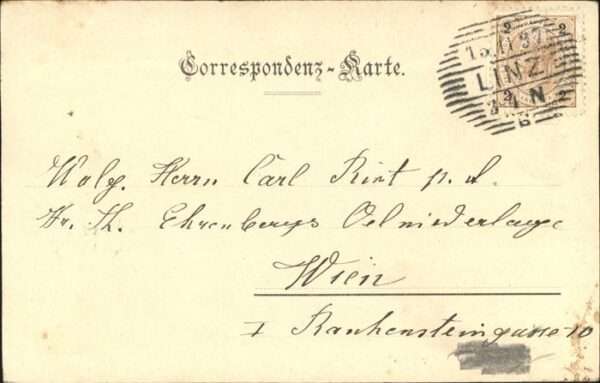 Correspondenz-Karte.
2 2
15.11.97
LINZ
3-4 N
2 2
6
Wolg. Herrn Carl Rint p. d.
Hr. Th. Ehrenbergs Oelniederlage
Wien
I Rauhensteingasse 10